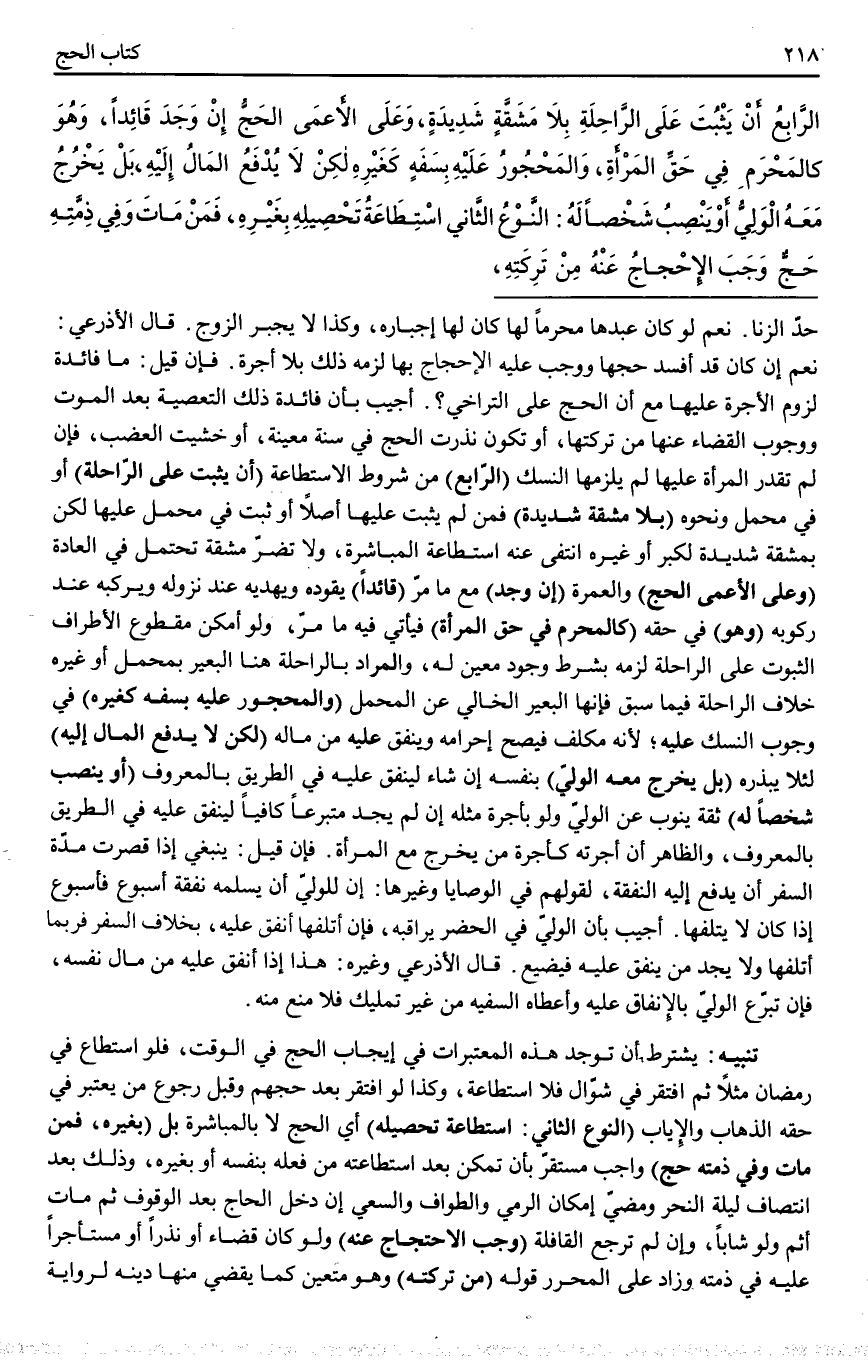 ٢١٨ كتاب الحج
الرَّابِعُ أَنْ يَثْبُتَ عَلَى الرَّاحِلَةِ بِلَا مَشَقَّةٍ شَدِيدَةٍ، وَعَلَى الأَعمَى الحَجُّ إِنْ وَجَدَ قَائِداً، وَهُوَ
كالمَحْرَمِ فِي حَقِّ المَرْأَةِ، وَالمَحْجُورُ عَلَيْهِ بِسَفَهٍ كَغَيْرِهِ لٰكِنْ لَا يُدْفَعُ المَالُ إِلَيْهِ، بَلْ يَخْرُجُ
مَعَهُ الْوَلِيُّ أَوْ يَنْصِبُ شَخْصاً لَهُ: النَّوْعُ الثَّانِي اسْتِطَاعَةُ تَحْصِيلِهِ بِغَيْرِهِ، فَمَنْ مَاتَ وَفِي ذِمَّتِهِ
حَجٌّ وَجَبَ الإِحْجاجُ عَنْهُ مِنْ تَرِكَتِهِ،
حدّ الزنا. نعم لو كان عبدها محرماً لها كان لها إجباره، وكذا لا يجبر الزوج. قال الأذرعي:
نعم إن كان قد أفسد حجها ووجب عليه الإحجاج بها لزمه ذلك بلا أجرة. فإن قيل: ما فائدة
لزوم الأجرة عليها مع أن الحج على التراخي؟. أجيب بأن فائدة ذلك التعصية بعد الموت
ووجوب القضاء عنها من تركتها، أو تكون نذرت الحج في سنة معينة، أو خشيت العضب، فإن
لم تقدر المرأة عليها لم يلزمها النسك (الرّابع) من شروط الاستطاعة (أن يثبت على الرّاحلة) أو
في محمل ونحوه (بلا مشقة شديدة) فمن لم يثبت عليها أصلاً أو ثبت في محمل عليها لكن
بمشقة شديدة لكبر أو غيره انتفى عنه استطاعة المباشرة، ولا تضرّ مشقة تحتمل في العادة
(وعلى الأعمى الحج) والعمرة (إن وجد) مع ما مرّ (قائداً) يقوده ويهديه عند نزوله ويركبه عند
ركوبه (وهو) في حقه (كالمحرم في حق المرأة) فيأتي فيه ما مرّ، ولو أمكن مقطوع الأطراف
الثبوت على الراحلة لزمه بشرط وجود معين له، والمراد بالراحلة هنا البعير بمحمل أو غيره
خلاف الراحلة فيما سبق فإنها البعير الخالي عن المحمل (والمحجور عليه بسفه كغيره) في
وجوب النسك عليه؛ لأنه مكلف فيصح إحرامه وينفق عليه من ماله (لكن لا يدفع المال إليه)
لئلا يبذره (بل يخرج معه الوليّ) بنفسه إن شاء لينفق عليه في الطريق بالمعروف (أو ينصب
شخصاً له) ثقة ينوب عن الوليّ ولو بأجرة مثله إن لم يجد متبرعاً كافياً لينفق عليه في الطريق
بالمعروف، والظاهر أن أجرته كأجرة من يخرج مع المرأة. فإن قيل: ينبغي إذا قصرت مدّة
السفر أن يدفع إليه النفقة، لقولهم في الوصايا وغيرها: إن للوليّ أن يسلمه نفقة أسبوع فأسبوع
إذا كان لا يتلفها. أجيب بأن الوليّ في الحضر يراقبه، فإن أتلفها أنفق عليه، بخلاف السفر فربما
أتلفها ولا يجد من ينفق عليه فيضيع. قال الأذرعي وغيره: هذا إذا أنفق عليه من مال نفسه،
فإن تبرّع الوليّ بالإنفاق عليه وأعطاه السفيه من غير تمليك فلا منع منه.
تنبيه: يشترط أن توجد هذه المعتبرات في إيجاب الحج في الوقت، فلو استطاع في
رمضان مثلاً ثم افتقر في شوّال فلا استطاعة، وكذا لو افتقر بعد حجهم وقبل رجوع من يعتبر في
حقه الذهاب والإياب (النوع الثاني: استطاعة تحصيله) أي الحج لا بالمباشرة بل (بغيره، فمن
مات وفي ذمته حج) واجب مستقرّ بأن تمكن بعد استطاعته من فعله بنفسه أو بغيره، وذلك بعد
انتصاف ليلة النحر ومضيّ إمكان الرمي والطواف والسعي إن دخل الحاج بعد الوقوف ثم مات
أثم ولو شاباً، وإن لم ترجع القافلة (وجب الاحتجاج عنه) ولو كان قضاء أو نذراً أو مستأجراً
عليه في ذمته وزاد على المحرر قوله (من تركته) وهو متعين كما يقضي منها دينه لرواية